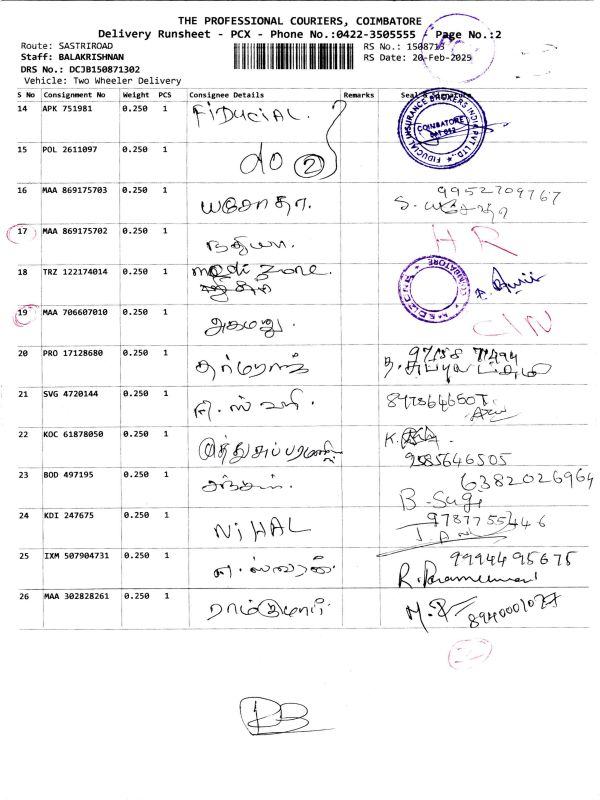 THE PROFESSIONAL COURIERS, COIMBATORE
Delivery Runsheet - PCX - Phone No.:0422-3505555 Page No.:2
Route: SASTRIROAD RS No.: 1508713
Staff: BALAKRISHNAN RS Date: 20-Feb-2025
DRS No.: DCJB150871302
Vehicle: Two Wheeler Delivery
S No Consignment No Weight PCS Consignee Details Remarks Seal & Signature
14 APK 751981 0.250 1 FiDUCiAL.
FIDUCIAL INSURANCE BROKERS INDIA PVT LTD.,
COIMBATORE
641 012
15 POL 2611097 0.250 1 do 2
16 MAA 869175703 0.250 1 யசோதா. 9952709767
S. யசோதா
17 MAA 869175702 0.250 1 நத்யா. HR
18 TRZ 122174014 0.250 1 medi zone.
COIMBATORE
19 MAA 706607010 0.250 1 C/N
20 PRO 17128680 0.250 1 தர்மராஜ் 97158 71494
21 SVG 4720144 0.250 1 8778646507.
22 KOC 61878050 0.250 1 முத்துசுப்ரமணி K.
9585646505
23 BOD 497195 0.250 1 6382026964
B. Sugi
24 KDI 247675 0.250 1 NiHAL 9787755446
25 IXM 507904731 0.250 1 9994495675
R. Parameswari
26 MAA 302828261 0.250 1 ராம்குமார். M.
8940001077